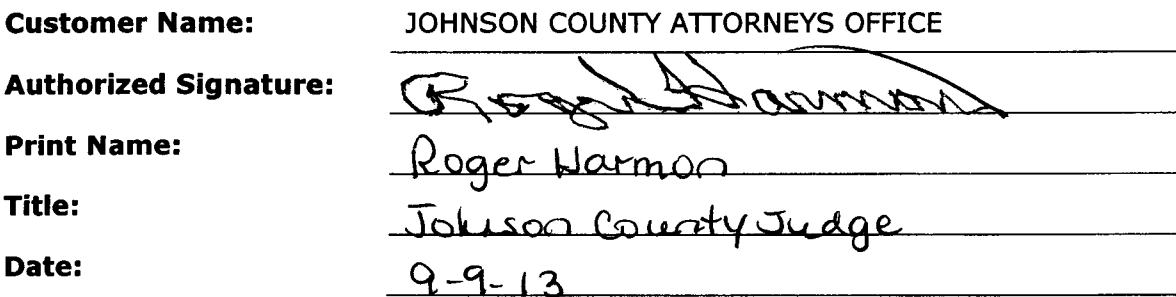 Customer Name: JOHNSON COUNTY ATTORNEYS OFFICE
Authorized Signature: Roger Harmon
Print Name: Roger Harmon
Title: Johnson County Judge
Date: 9-9-13